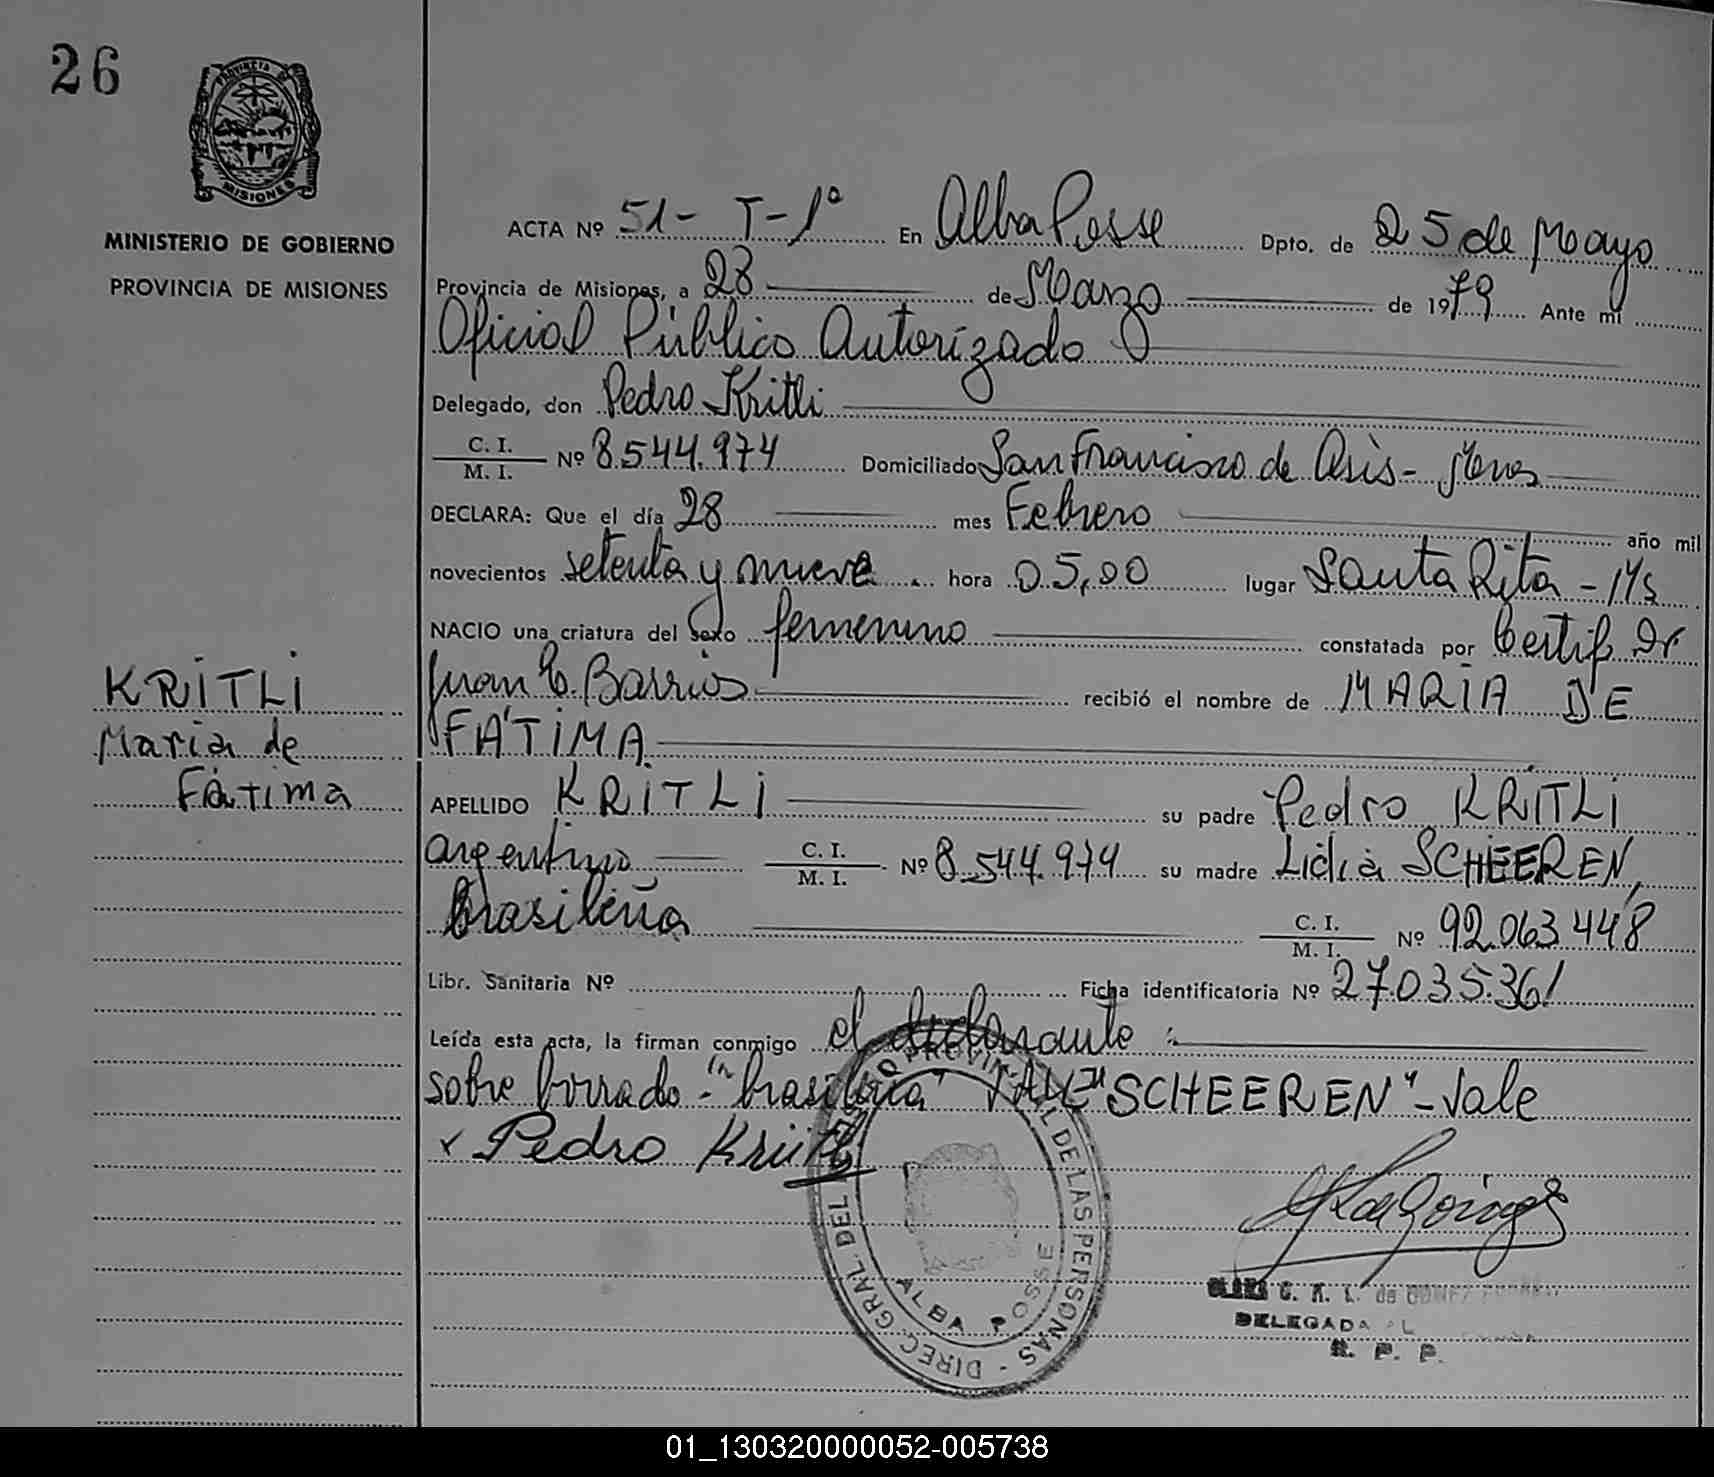 26
PROVINCIA DE
MISIONES
MINISTERIO DE GOBIERNO
PROVINCIA DE MISIONES
KRITLI
Maria de
Fátima
ACTA Nº 51- T-1º En Alba Posse Dpto. de 25 de Mayo
Provincia de Misiones, a 28 de Marzo de 1979 Ante mi
Oficial Público Autorizado
Delegado, don Pedro Kritli
C. I.
M. I. Nº 8.544.974 Domiciliado San Francisco de Asis-
DECLARA: Que el día 28 mes Febrero año mil
novecientos setenta y nueve hora 05,00 lugar Santa Rita - Ms
NACIO una criatura del sexo femenino constatada por Certif. Dr
Juan C. Barrios recibió el nombre de MARIA DE
FÁTIMA
APELLIDO KRITLI su padre Pedro KRITLI
argentino C. I.
M. I. Nº 8.544.974 su madre Lidia SCHEEREN,
brasileña C. I.
M. I. Nº 92.063.448
Libr. Sanitaria Nº Ficha identificatoria Nº 27.035.361
Leída esta acta, la firman conmigo el declarante:
sobre borrado - "brasileña" "SCHEEREN" - Vale
x Pedro Kritli
DIREC. GRAL. DEL PROVINCIAL DE LAS PERSONAS -
ALBA POSSE
DELEGADA
R. P. P.
01_130320000052-005738